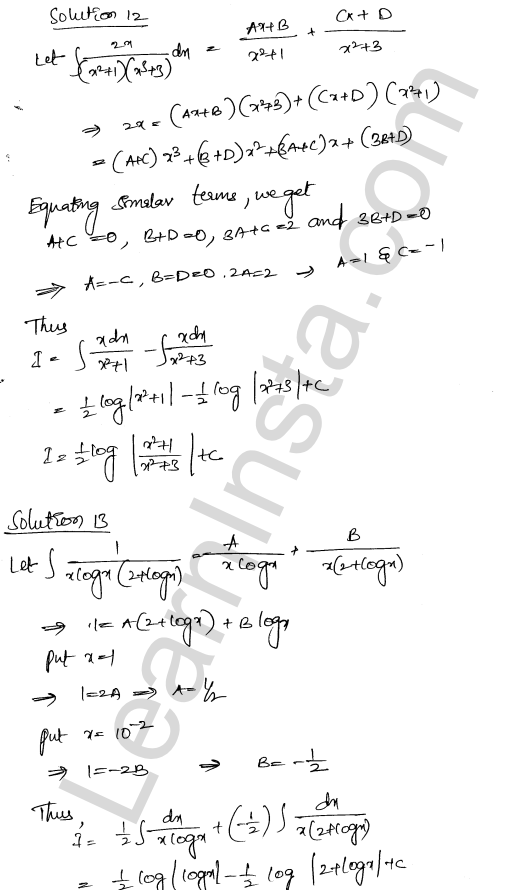 Solution 12
Let ∫ 2x/((x²+1)(x²+3)) dx = (Ax+B)/(x²+1) + (Cx+D)/(x²+3)
⇒ 2x = (Ax+B)(x²+3) + (Cx+D)(x²+1)
= (A+C)x³ + (B+D)x² + (3A+C)x + (3B+D)
Equating similar terms, we get
A+C=0, B+D=0, 3A+C=2 and 3B+D=0
⇒ A=-C, B=D=0. 2A=2 → A=1 & C=-1
Thus
I = ∫ xdx/(x²+1) - ∫ xdx/(x²+3)
= 1/2 log|x²+1| - 1/2 log |x²+3| + C
I = 1/2 log |(x²+1)/(x²+3)| + C
Solution 13
Let ∫ 1/(xlogx(2+logx)) = A/(xlogx) + B/(x(2+logx))
⇒ 1 = A(2+logx) + B logx
put x=1
⇒ 1=2A ⇒ A=1/2
put x=10⁻²
⇒ 1=-2B ⇒ B=-1/2
Thus,
I = 1/2 ∫ dx/(xlogx) + (-1/2) ∫ dx/(x(2+logx))
= 1/2 log|logx| - 1/2 log |2+logx| + C
LearnInsta.com